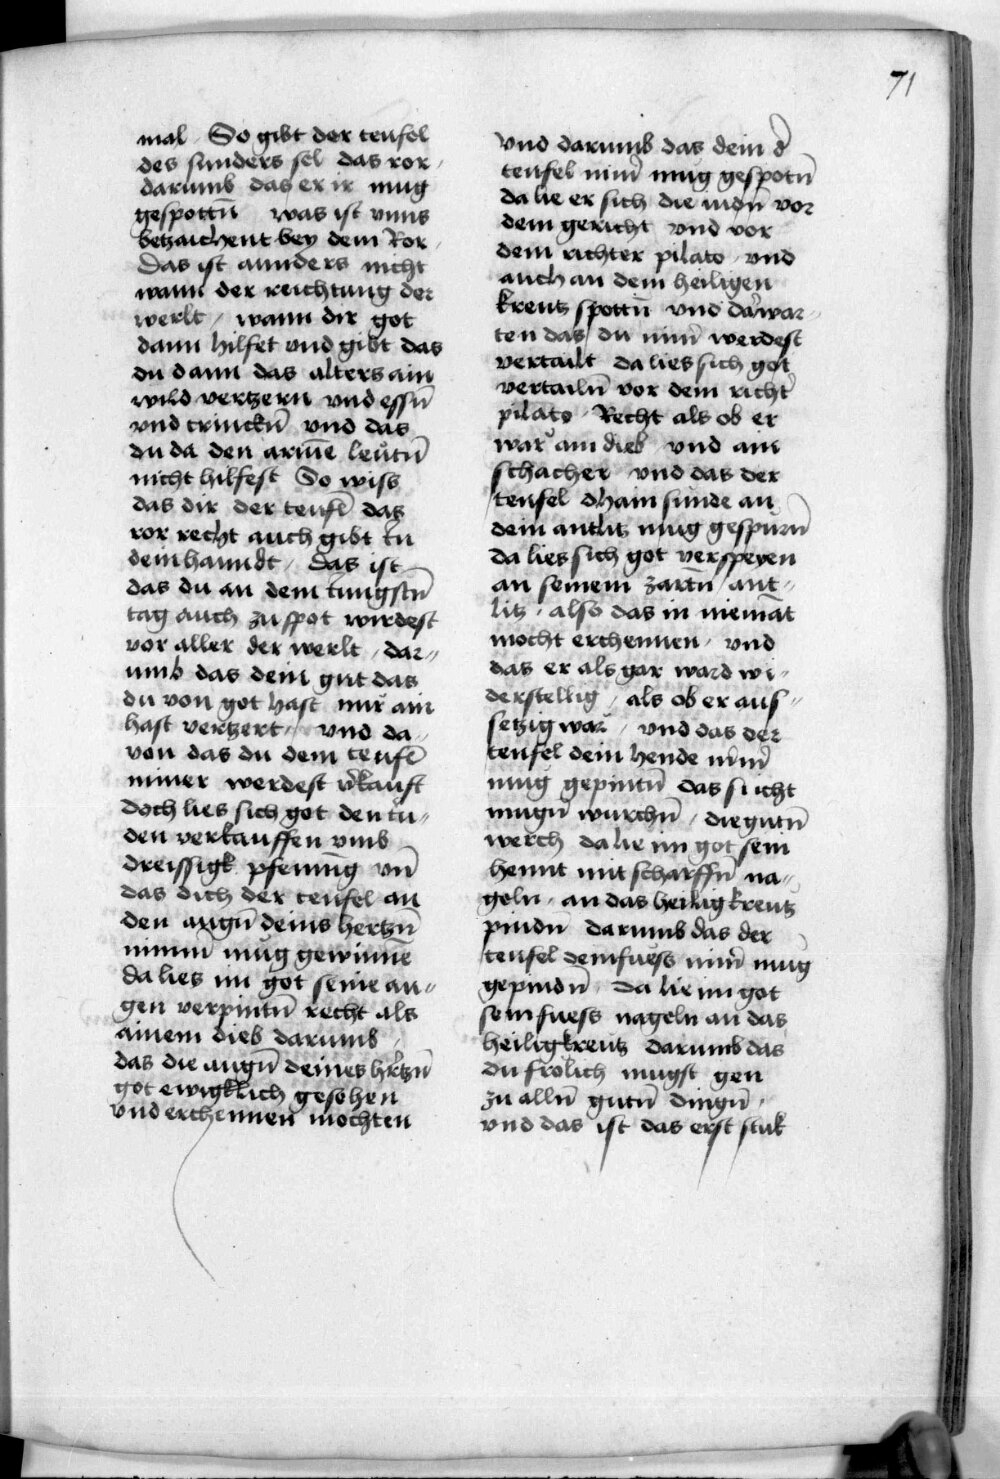 71
mal · So gibt der teufel
des sunders sel das ror ·
darumb das er ir mug
gespottn̄ was ist vnns
betzaichent bey dem Ror ·
Das ist annders nicht
wann der reichtung der
werlt · wann dir got
dann hilfet vnd gibt das
du dann das alters ain
wild vertzern vnd essn̄
vnd trinckn̄ vnd das
du da den arme̅ leutn̄
nicht hilfest So wiss
das dir der teufl̄ das
ror recht auch gibt in
dein hanndt · das ist
das du an dem iungstn̄
tag auch zu spot wirdest
vor aller der werlt · dar-
umb das dein gut das
du von got hast nur ain
hast vertzert · vnd da-
von das du dem teufl̄
nimer werdest v̓kauft
doch lies sich got den iu-
den verkauffen vmb
dreissigk pfening vn̄
das dich der teufel an
den augn̄ deins hertzn̄
nimm̓ mug gewinne̅
da lies im got seine au-
gen verpintn̄ recht als
ainem dieb darumb ·
das die augn̄ deines hertzn̄
got ewigklich gesehen
vnd erchennen mochten
vnd darumb das dein d̓
teufel nim̓ mug gespotn̄
da lie er sich die iudn̄ vor
dem gericht vnd vor
dem richter pilato · vnd
auch an dem heiligen
kreutz spottn̄ vnd das war-
ten das du nim̓ werdest
vertailt da lies sich got
vertailn̄ vor dem richt̓
pilato · Recht als ob er
war ain dieb vnd ain
schacher vnd das der
teufel dhain sunde an
dein antlitz mug gespurn̄
da lies sich got verspeyen
an seinem zartn̄ ant-
litz · also das in niema̅t
mocht erchennen · vnd
das er als gar ward wi-
derstellig · als ob er aus-
setzig war · vnd das der
teufel dein hende nim̓
mug gepintn̄ das si icht
mugn̄ wurchn̄ · die gutn̄
werch da lie im got sein
hennt mit scharffn̄ na-
geln · an das heilig kreutz
pindn̄ darumb das der
teufel dein fuess nim̓ mug
gepindn̄ · Da lie im got
sein fuess nageln an das
heilig kreutz darumb das
du frolich mugst gen
zu alln̄ gutn̄ dingn̄ ·
vnd das ist das erst stuk